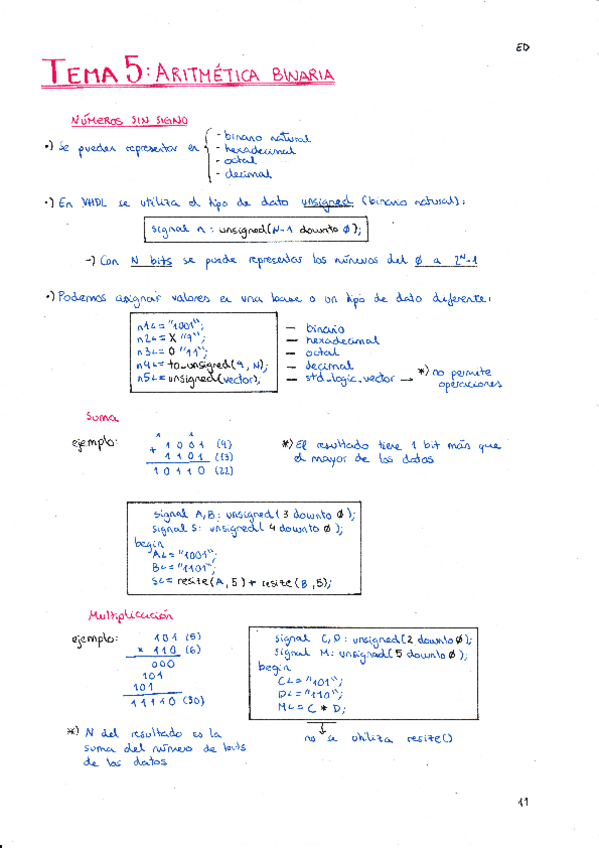 ED
TEMA 5: ARITMÉTICA BINARIA
NÚMEROS SIN SIGNO
•) Se pueden representar en { - binario natural
- hexadecimal
- octal
- decimal
•) En VHDL se utiliza el tipo de dato unsigned (binario natural):
signal n : unsigned(N-1 downto 0);
-) Con N bits se puede representar los números del 0 a 2^N-1
•) Podemos asignar valores en una base o un tipo de dato diferente:
n1<="1001"; — binario
n2<= X "9"; — hexadecimal
n3<= O "11"; — octal
n4<= to_unsigned(9, N); — decimal
n5<= unsigned(vector); — std_logic_vector → *) no permite operaciones
Suma
ejemplo:
1 1
1 0 0 1 (9)
+ 1 1 0 1 (13)
1 0 1 1 0 (22)
*) El resultado tiene 1 bit más que
el mayor de los datos
signal A,B: unsigned(3 downto 0);
signal S: unsigned(4 downto 0);
begin
A<= "1001";
B<= "1101";
S<= resize(A,5) + resize(B,5);
Multiplicación
ejemplo:
101 (5)
× 110 (6)
000
101
101
11110 (30)
signal C,D: unsigned(2 downto 0);
signal M: unsigned(5 downto 0);
begin
C<= "101";
D<= "110";
M<= C * D;
↓
no se utiliza resize()
*) N del resultado es la
suma del número de bits
de los datos
11